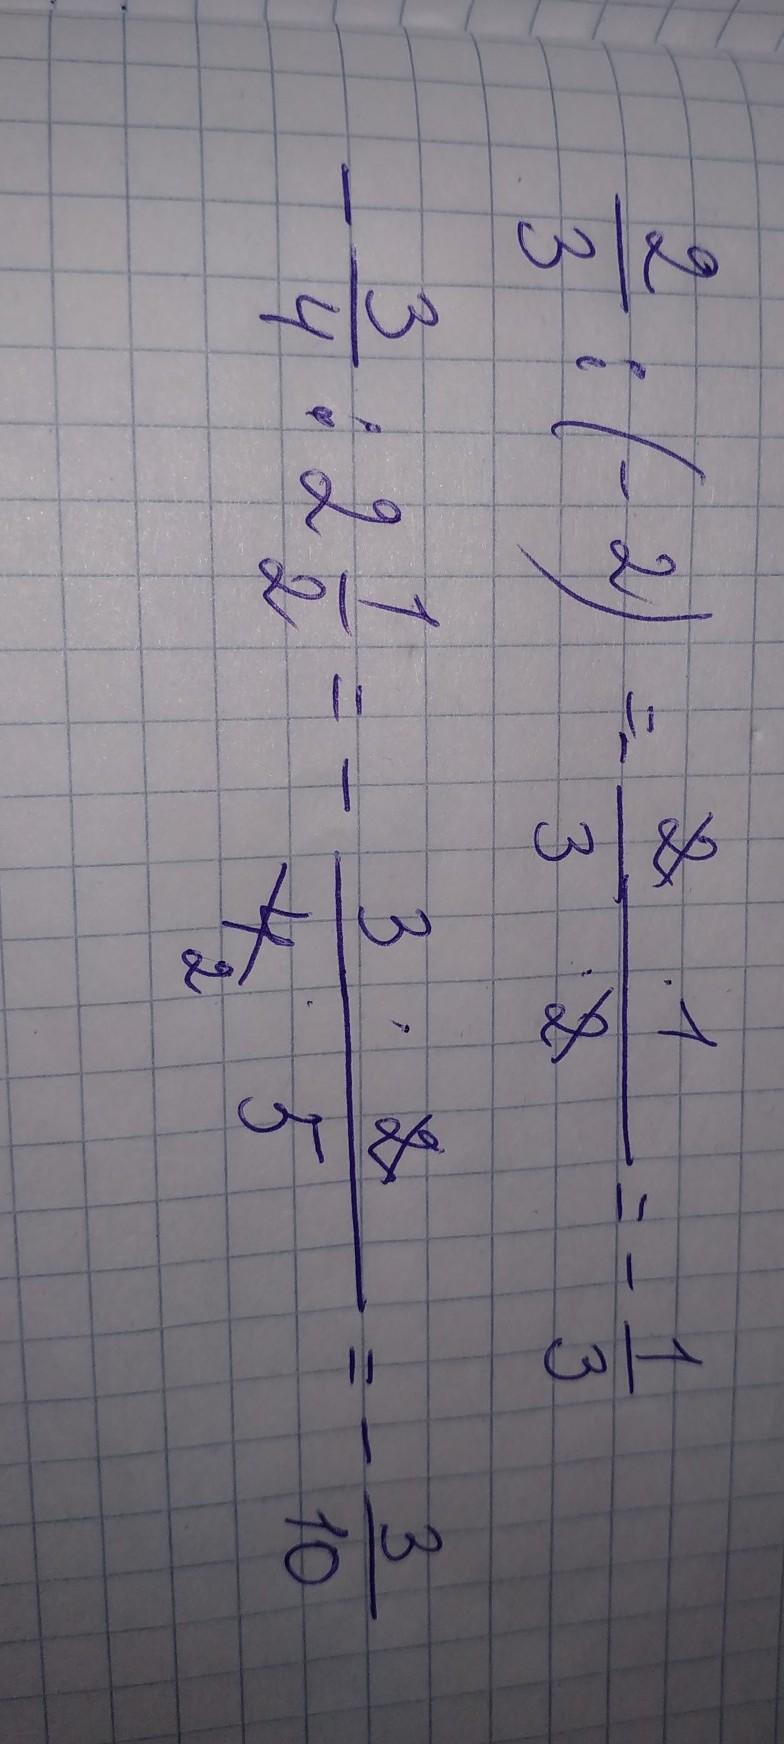 2/3 : (-2) = - 2 · 1 / 3 · 2 = - 1/3
- 3/4 : 2 1/2 = - 3 · 2 / 4 2 · 5 = - 3/10